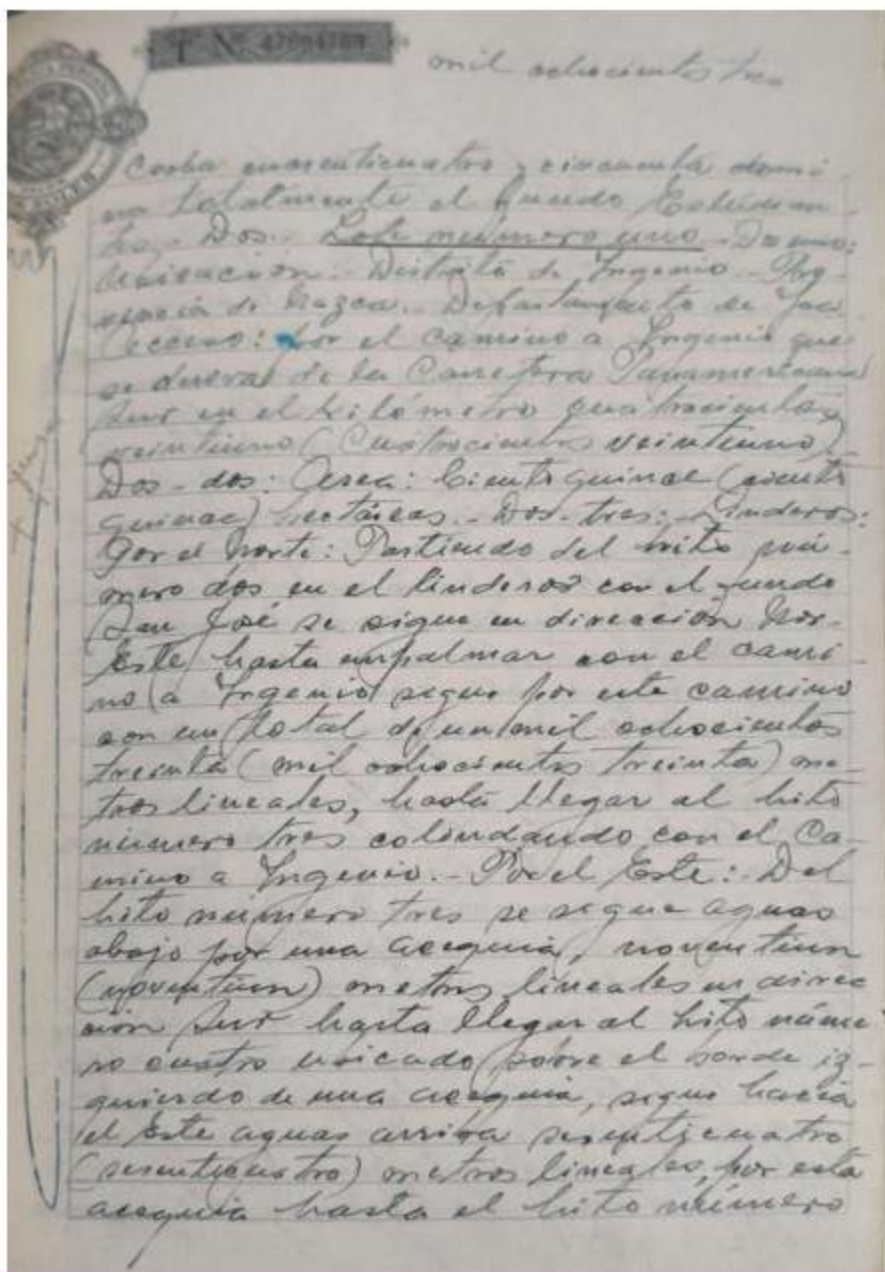 mil ochocientos tres
Corba cuarenticuatro y cincuenta domi-
na totalmente el fundo Estudian-
tes.- Dos.- Lote número uno.- Dos-uno:
Ubicación.- Distrito de Ingenio.- Pro-
vincia de Nazca.- Departamento de Ica
Acceso: Por el camino a Ingenio que
se deriva de la Carretera Panamericana
Sur en el kilómetro cuatrocientos
veintiuno (Cuatrocientos veintiuno).-
Dos-dos: Area: Ciento quince (ciento
quince) hectáreas.- Dos-tres:- Linderos:
Por el Norte: Partiendo del hito nú-
mero dos en el linderos con el fundo
San José se sigue en dirección Nor-
Este hasta empalmar con el cami-
no a Ingenio sigue por este camino
con un total de un mil ochocientos
treinta (mil ochocientos treinta) me-
tros lineales, hasta llegar al hito
número tres colindando con el Ca-
mino a Ingenio.- Por el Este:- Del
hito número tres se sigue aguas
abajo por una acequia, noventiun
(noventiun) metros lineales en direc
ción Sur hasta llegar al hito núme
ro cuatro ubicado sobre el borde iz-
quierdo de una acequia, sigue hacia
el Este aguas arriba sesenticuatro
(sesenticuatro) metros lineales, por esta
acequia hasta el hito número